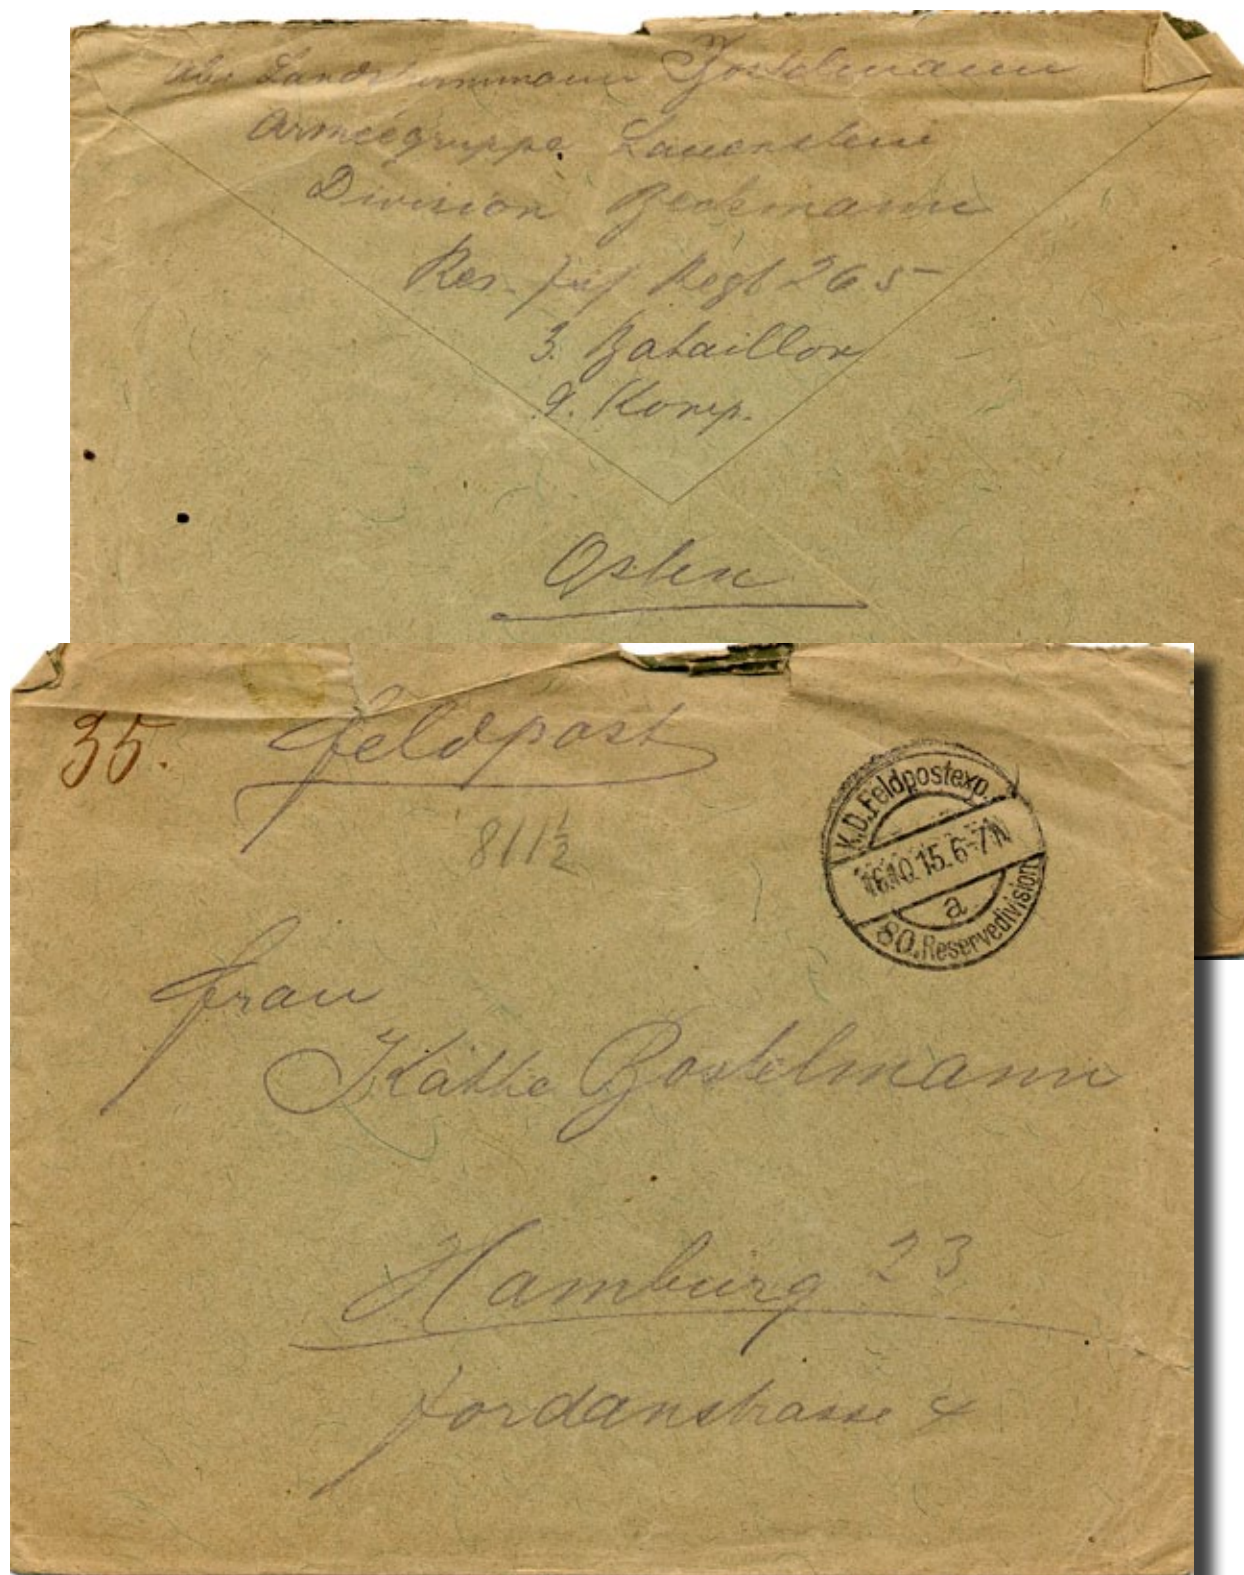 Abs. Landsturmmann Bostelmann
Armeegruppe Lauenstein
Division Beckmann
Res. Inf. Regt 265
3. Bataillon
9. Komp.
Osten
35.
Feldpost
811 1/2
K.D. Feldpostexp.
16.10.15. 6-7 N
a
80. Reservedivision
Frau
Käthe Bostelmann
Hamburg 23
Jordanstrasse 4